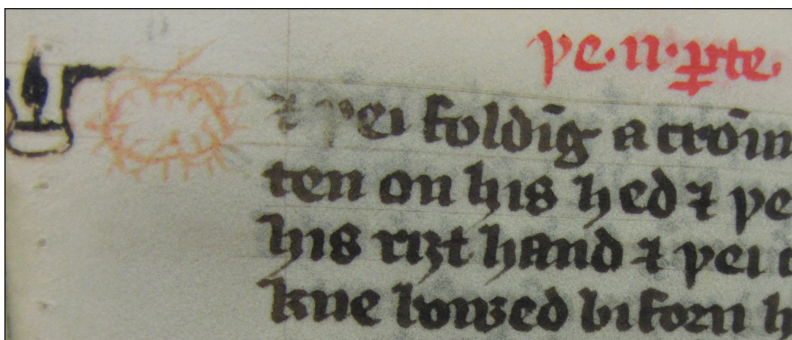 þe · ii · p̲te ·
⁊ þei foldīg a croū
ten on his hed ⁊ þe
his riȝt hand ⁊ þei
kne bowed biforn h